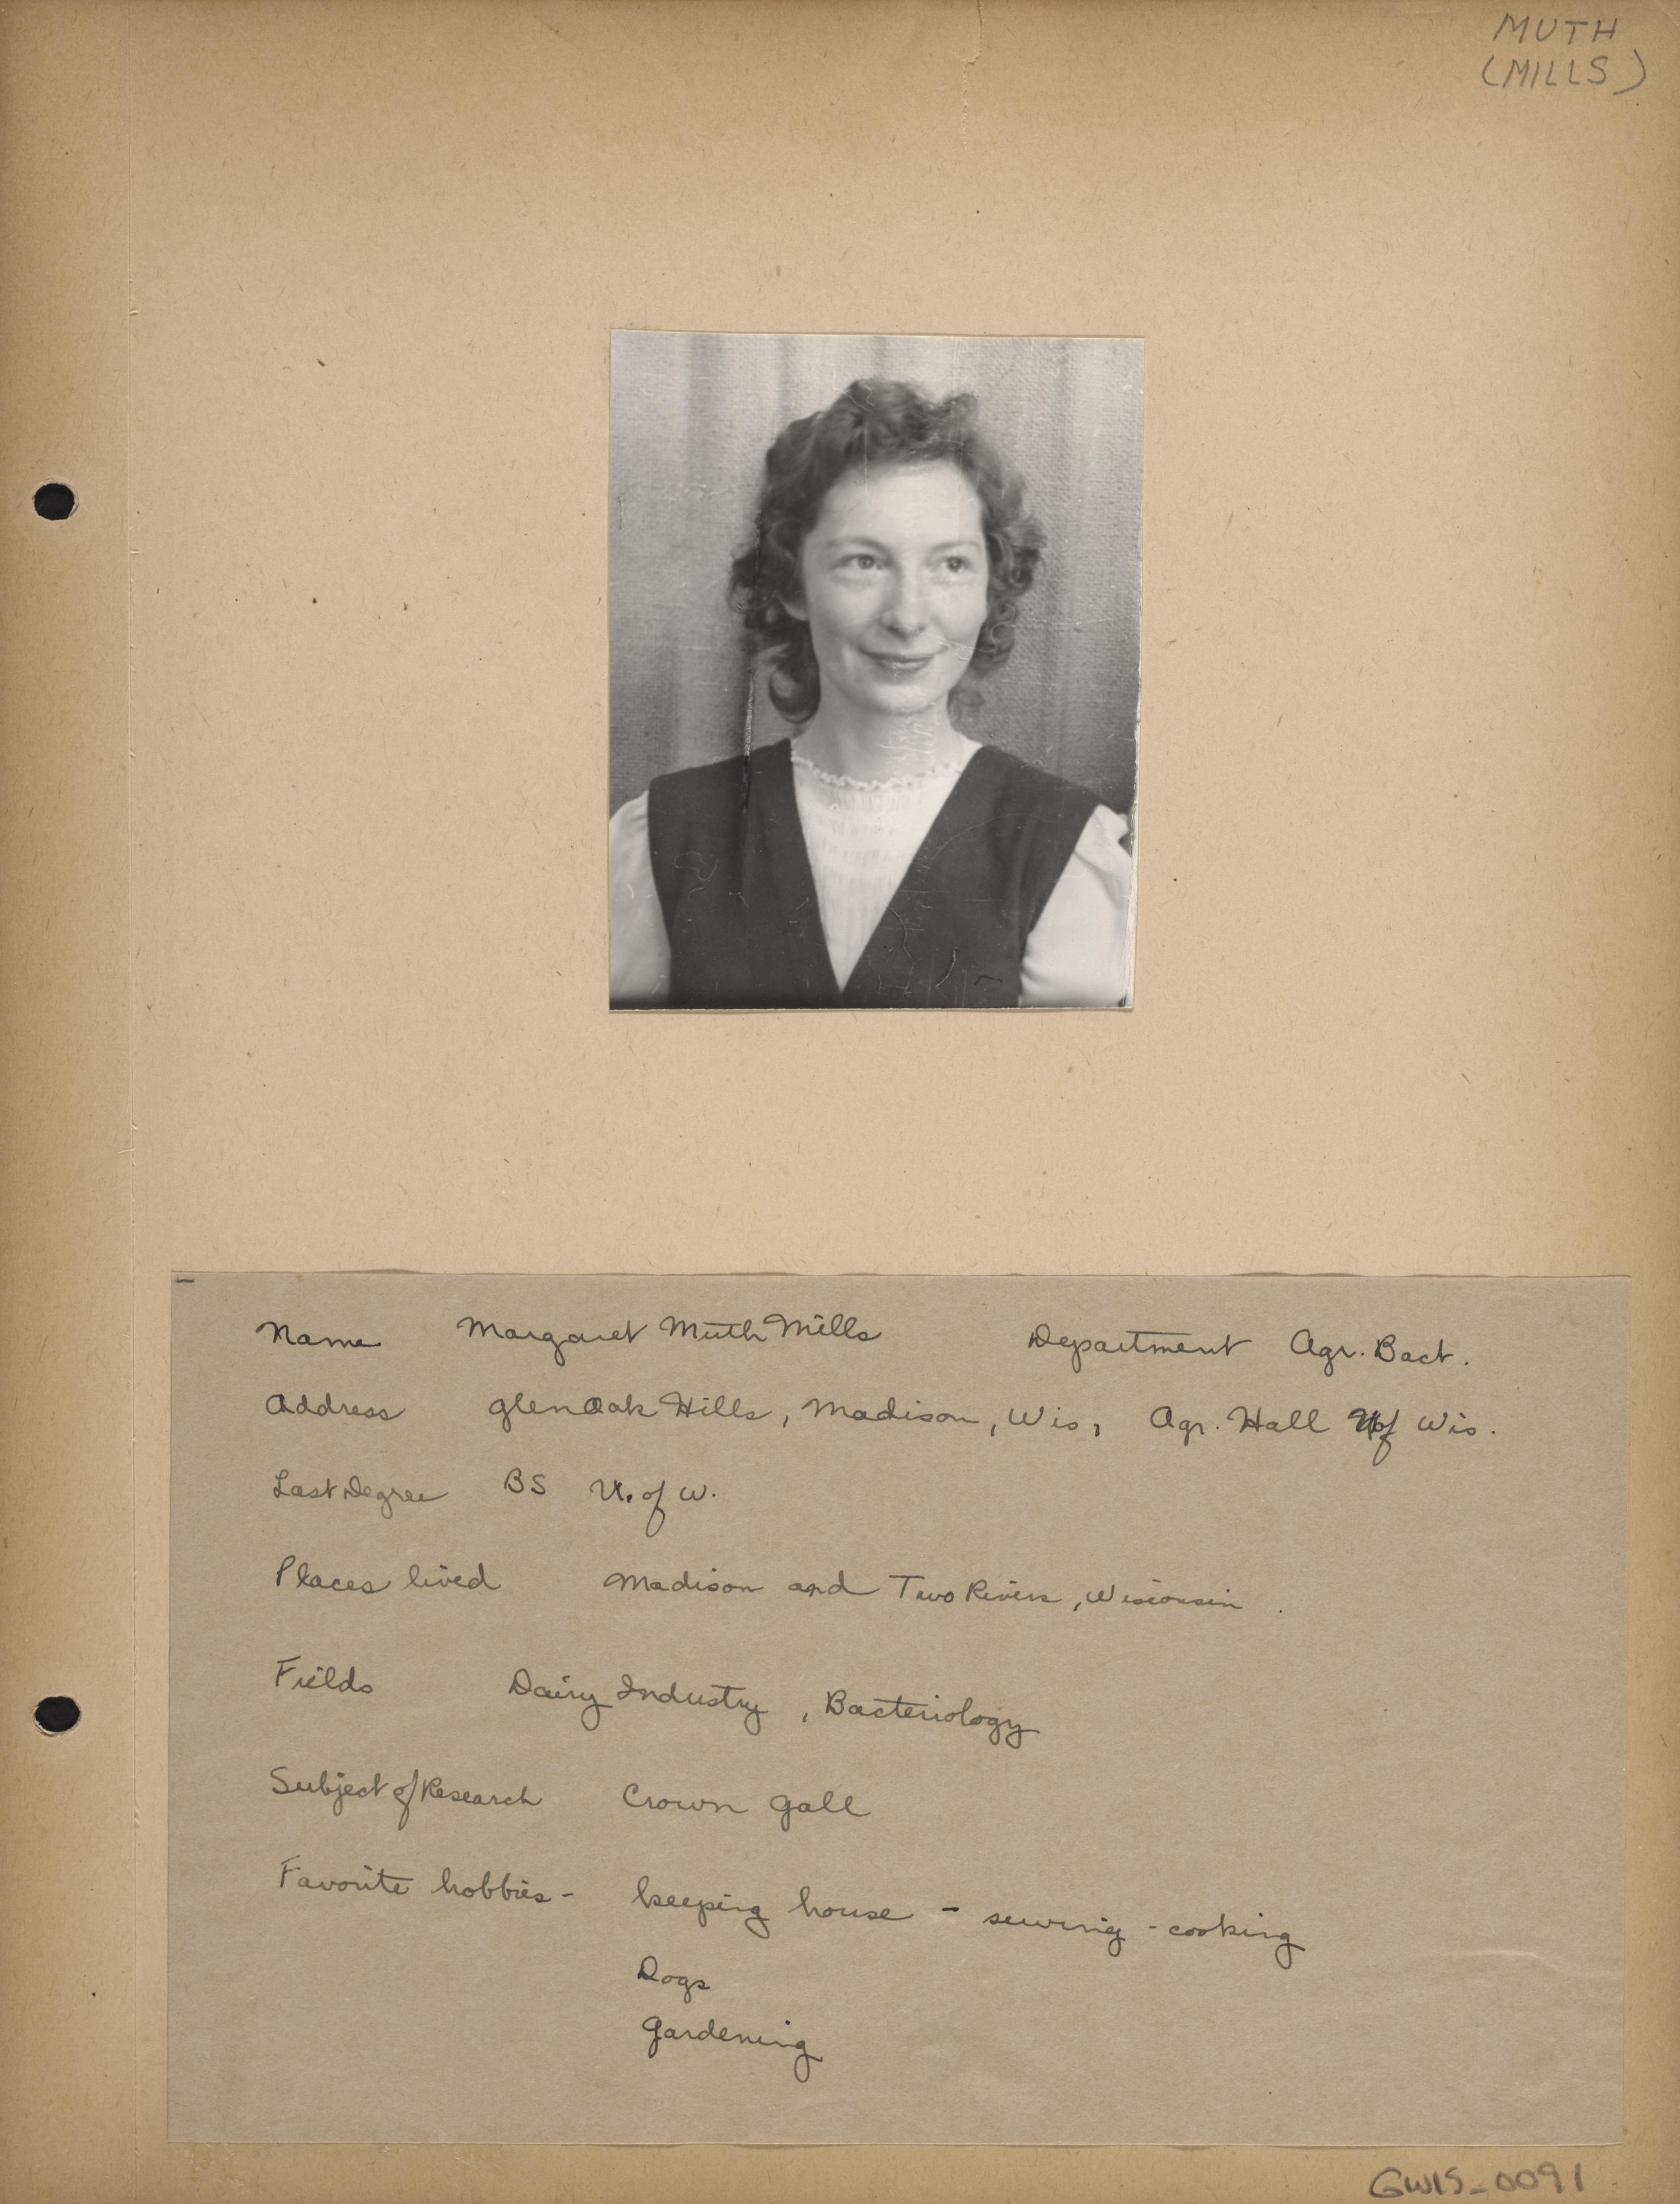 MUTH
(MILLS)
Name Margaret Muth Mills Department Agr. Bact.
Address Glen Oak Hills, Madison, Wis, Agr. Hall U of Wis.
Last Degree BS U. of W.
Places lived Madison and Two Rivers, Wisconsin.
Fields Dairy Industry, Bacteriology
Subject of Research Crown Gall
Favorite hobbies - keeping house - sewing - cooking
Dogs
Gardening
GWIS_0091